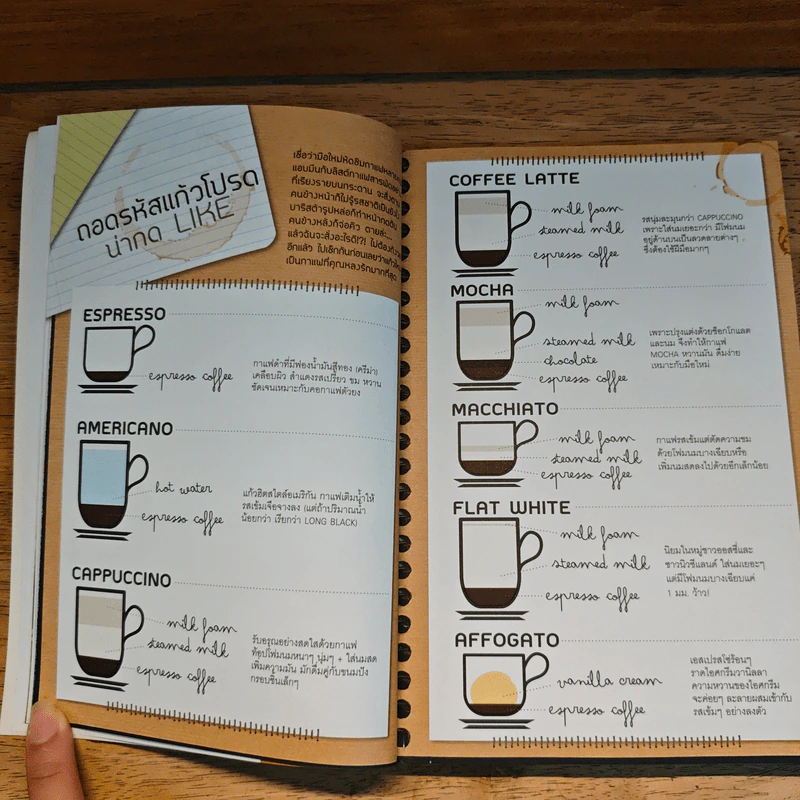 ถอดรหัสแก้วโปรด
น่ากด LIKE
เชื่อว่ามือใหม่หัดชิมกาแฟหลาย
แอบมึนกับลิสต์กาแฟสารพัด
ที่เรียงรายบนกระดาน จะสั่งตาม
คนข้างหน้าก็ไม่รู้รสชาติเป็นยังไง
บาริสต้ารูปหล่อก็ทำหน้ากดดัน
คนข้างหลังก็จ่อคิว ตายล่ะ...
แล้วฉันจะสั่งอะไรดี!?! ไม่ต้อง
อีกแล้ว ไปเช็กกันก่อนเลยว่าแก้วไหน
เป็นกาแฟที่คุณหลงรักมากที่สุด
ESPRESSO
espresso coffee
กาแฟดำที่มีฟองน้ำมันสีทอง (ครีม่า)
เคลือบผิว สำแดงรสเปรี้ยว ขม หวาน
ชัดเจนเหมาะกับคอกาแฟตัวยง
AMERICANO
hot water
espresso coffee
แก้วฮิตสไตล์อเมริกัน กาแฟเติมน้ำให้
รสเข้มเจือจางลง (แต่ถ้าปริมาณน้ำ
น้อยกว่า เรียกว่า LONG BLACK)
CAPPUCCINO
milk foam
steamed milk
espresso coffee
รับอรุณอย่างสดใสด้วยกาแฟ
ท้อปโฟมนมหนาๆ นุ่มๆ + ใส่นมสด
เพิ่มความมัน มักดื่มคู่กับขนมปัง
กรอบชิ้นเล็กๆ
COFFEE LATTE
milk foam
steamed milk
espresso coffee
รสนุ่มละมุนกว่า CAPPUCCINO
เพราะใส่นมเยอะกว่า มีโฟมนม
อยู่ด้านบนเป็นลวดลายต่างๆ
ซึ่งต้องใช้ฝีมือมากๆ
MOCHA
milk foam
steamed milk
chocolate
espresso coffee
เพราะปรุงแต่งด้วยช็อกโกแลต
และนม จึงทำให้กาแฟ
MOCHA หวานมัน ดื่มง่าย
เหมาะกับมือใหม่
MACCHIATO
milk foam
steamed milk
espresso coffee
กาแฟรสเข้มแต่ตัดความขม
ด้วยโฟมนมบางเฉียบหรือ
เพิ่มนมสดลงไปด้วยอีกเล็กน้อย
FLAT WHITE
milk foam
steamed milk
espresso coffee
นิยมในหมู่ชาวออสซี่และ
ชาวนิวซีแลนด์ ใส่นมเยอะๆ
แต่มีโฟมนมบางเฉียบแค่
1 มม. ว้าว!
AFFOGATO
vanilla cream
espresso coffee
เอสเปรสโซ่ร้อนๆ
ราดไอศกรีมวานิลลา
ความหวานของไอศกรีม
จะค่อยๆ ละลายผสมเข้ากับ
รสเข้มๆ อย่างลงตัว